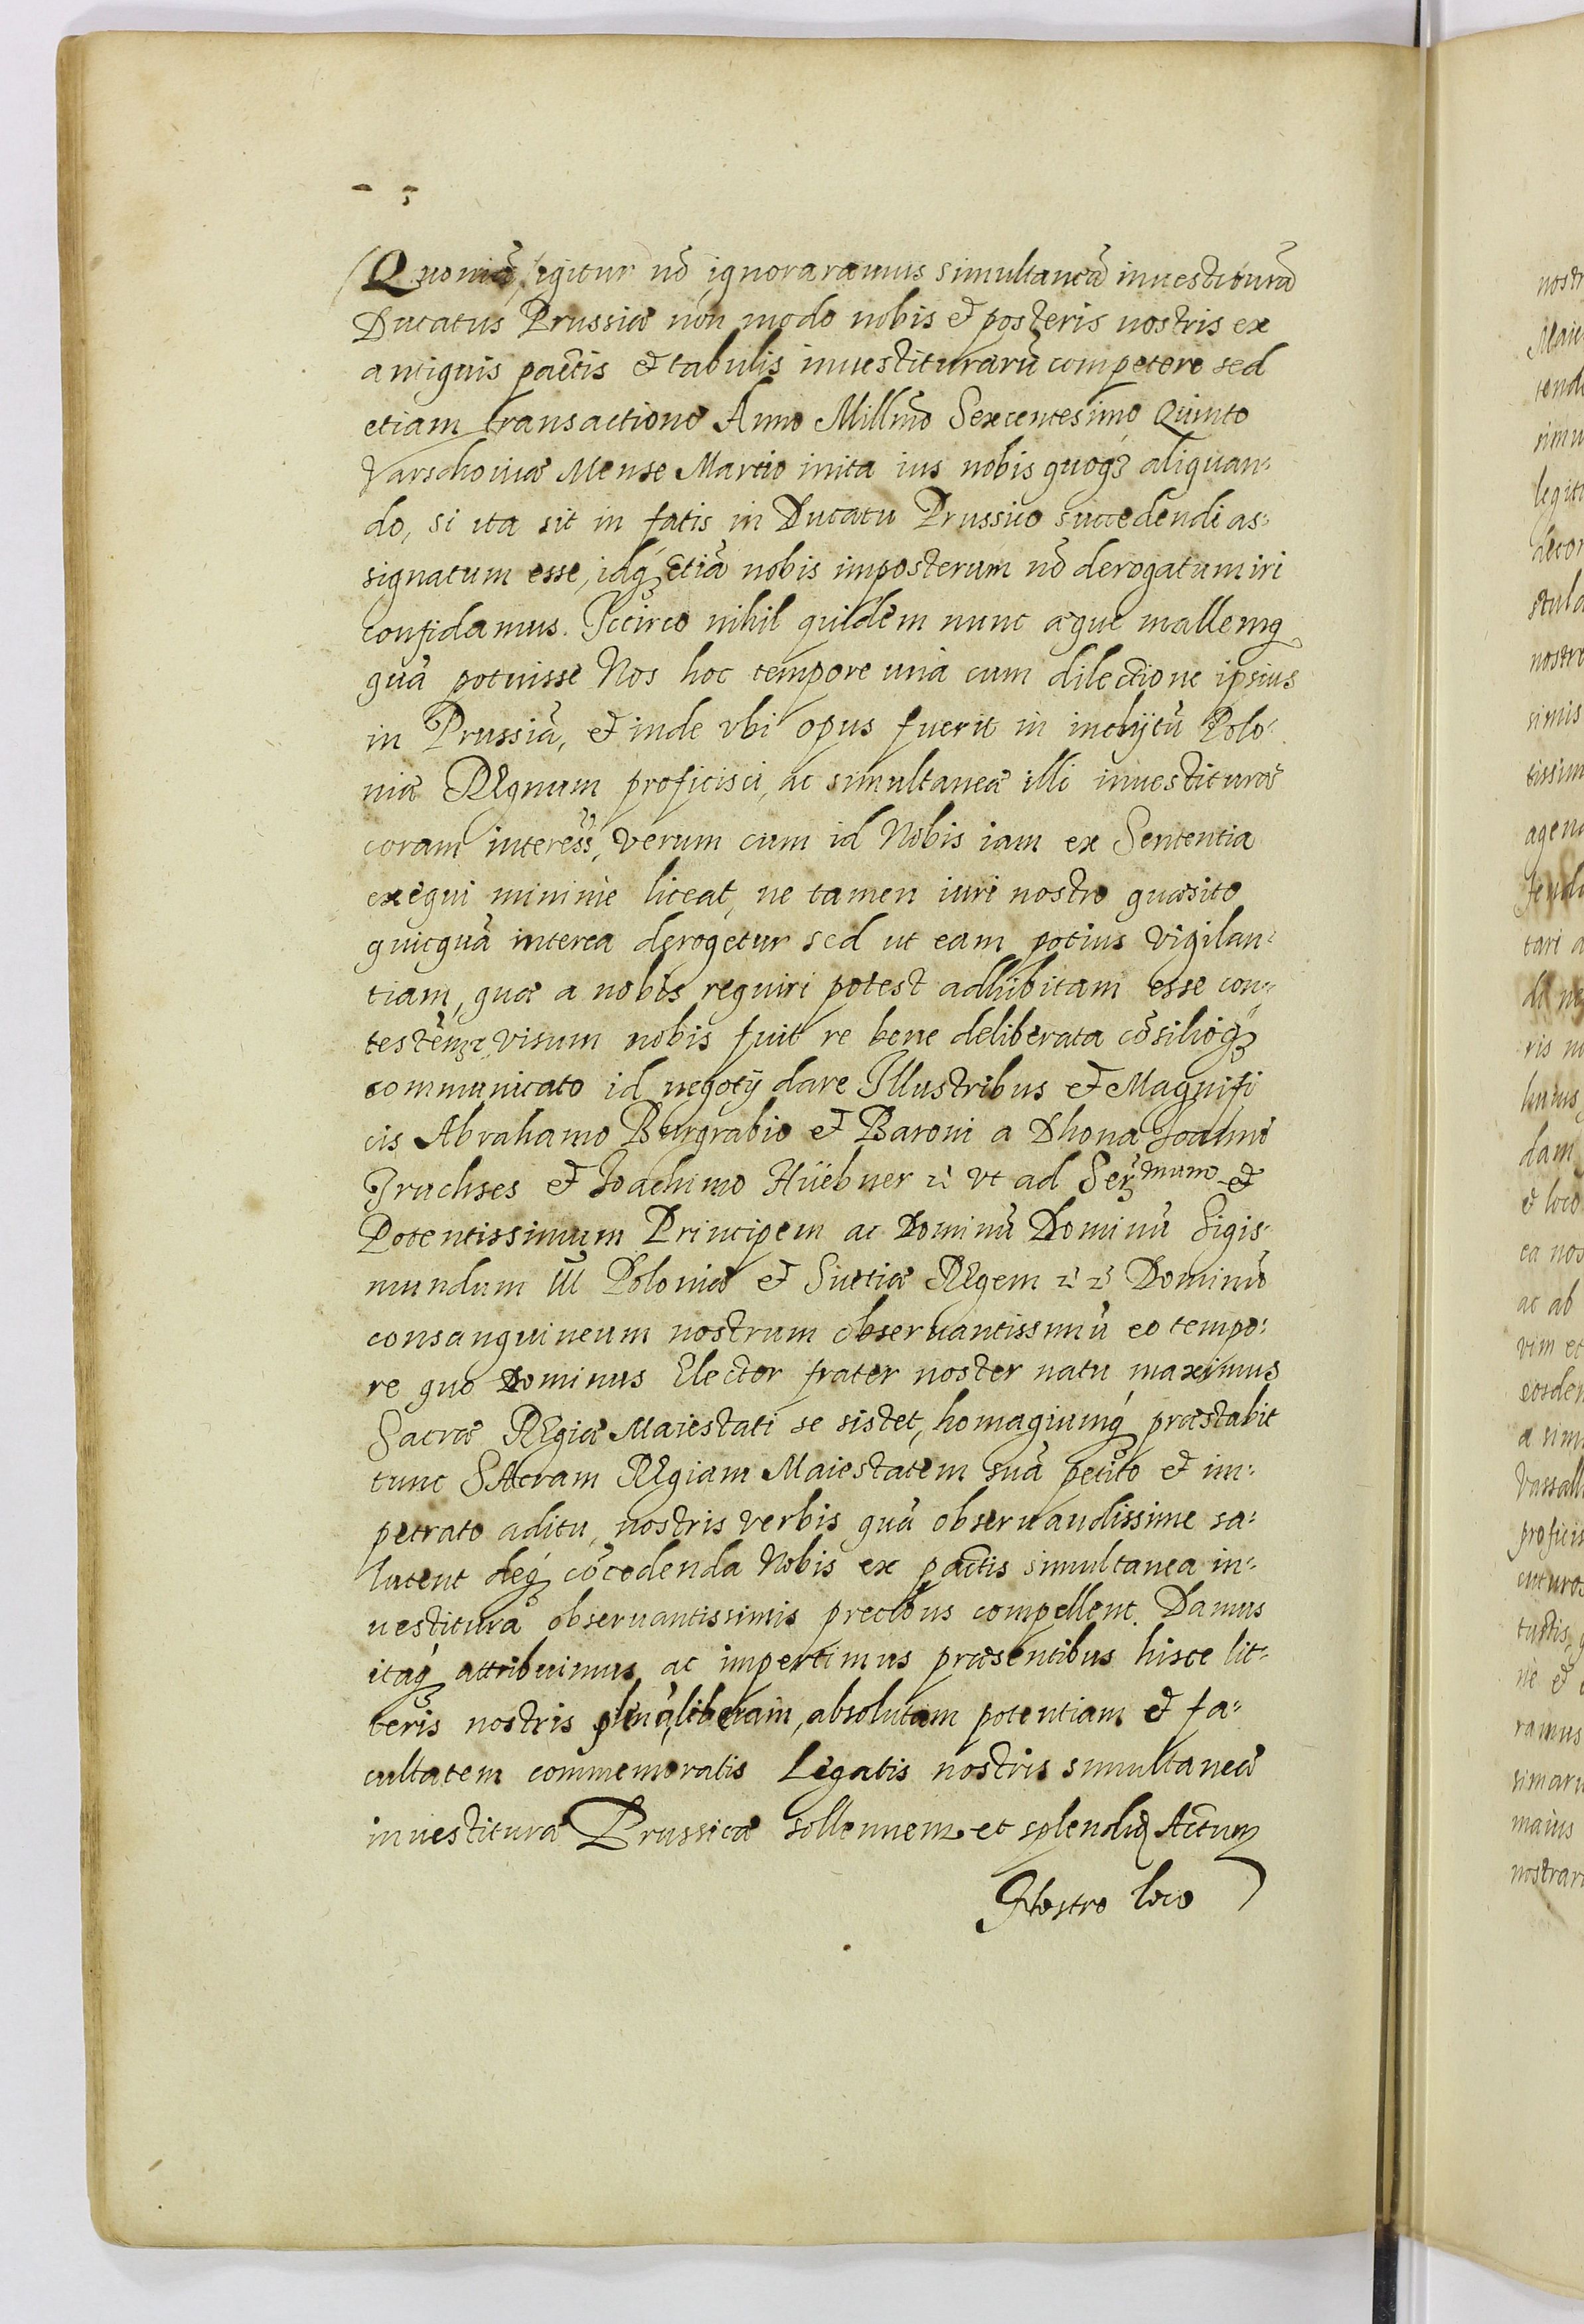 Quoniã igitur nõ ignoraramus simultaneã inuestiturã
Ducatus Prussiæ non modo nobis et posteris nostris ex
antiquis pactis et tabulis inuestiturarũ competere sed
etiam transactione Anno Millmõ Sexcentesimo Quinto
Varschoviæ Mense Martio inita ius nobis quoqꝫ aliquan:
do, si ita sit in fatis in Ducatu Prussico succedendi as:
signatum esse, idqꝫ etiã nobis imposterum nõ derogatum iri
confidamus. Iccirco nihil quidem nunc æque mallemq
quã potuisse Nos hoc tempore unà cum dilectione ipsius
in Prussiã, et inde vbi opus fuerit in inclytũ Polo:
niæ REgnum proficisci, ac simultaneæ illi inuestituræ
coram interess̃, verum cum id Nobis iam ex Sententia
exequi minime liceat, ne tamen iuri nostro quæsito
quicquã interea derogetur sed ut eam potius vigilan:
tiam, quæ a nobis requiri potest adhibitam esse con:
testemꝛ, visum nobis fuit re bene deliberata cõsilioqꝫ
communicato id negotÿ dare Illustribus et Magnifi
cis Abrahamo Burgrabio et Baroni a Dhona Joanni
Truchses et Joachimo Hüebner ꝛc̃ vt ad Serꝫmum et
Potentissimum Principem ac Dominũ Dominũ Sigis:
mundum III Poloniæ et Suetiæ REgem ꝛc̃ ꝛc̃ Dominũ
consanguineum nostrum obseruantissimũ eo tempo:
re quo Dominus Elector frater noster natu maximus
Sacræ REgiæ Maiestati se sistet, homagiumq́ꝫ præstabit
tunc SAcram REgiam Maiestatem suã petito et im:
petrato aditu, nostris verbis quã obseruandissime sa:
lutent deq́ꝫ cõcedenda Nobis ex pactis simultanea in:
uestitura obseruantissimis precibus compellent. Damus
itaq́ꝫ attribuimus ac impertimus præsentibus hisce lit:
teris nostris plenã, liberam, absolutam potentiam et fa:
cultatem commemoratis Legatis nostris simultaneæ
inuestituræ Prussicæ sollennem et splendid Actum
Nostro loco